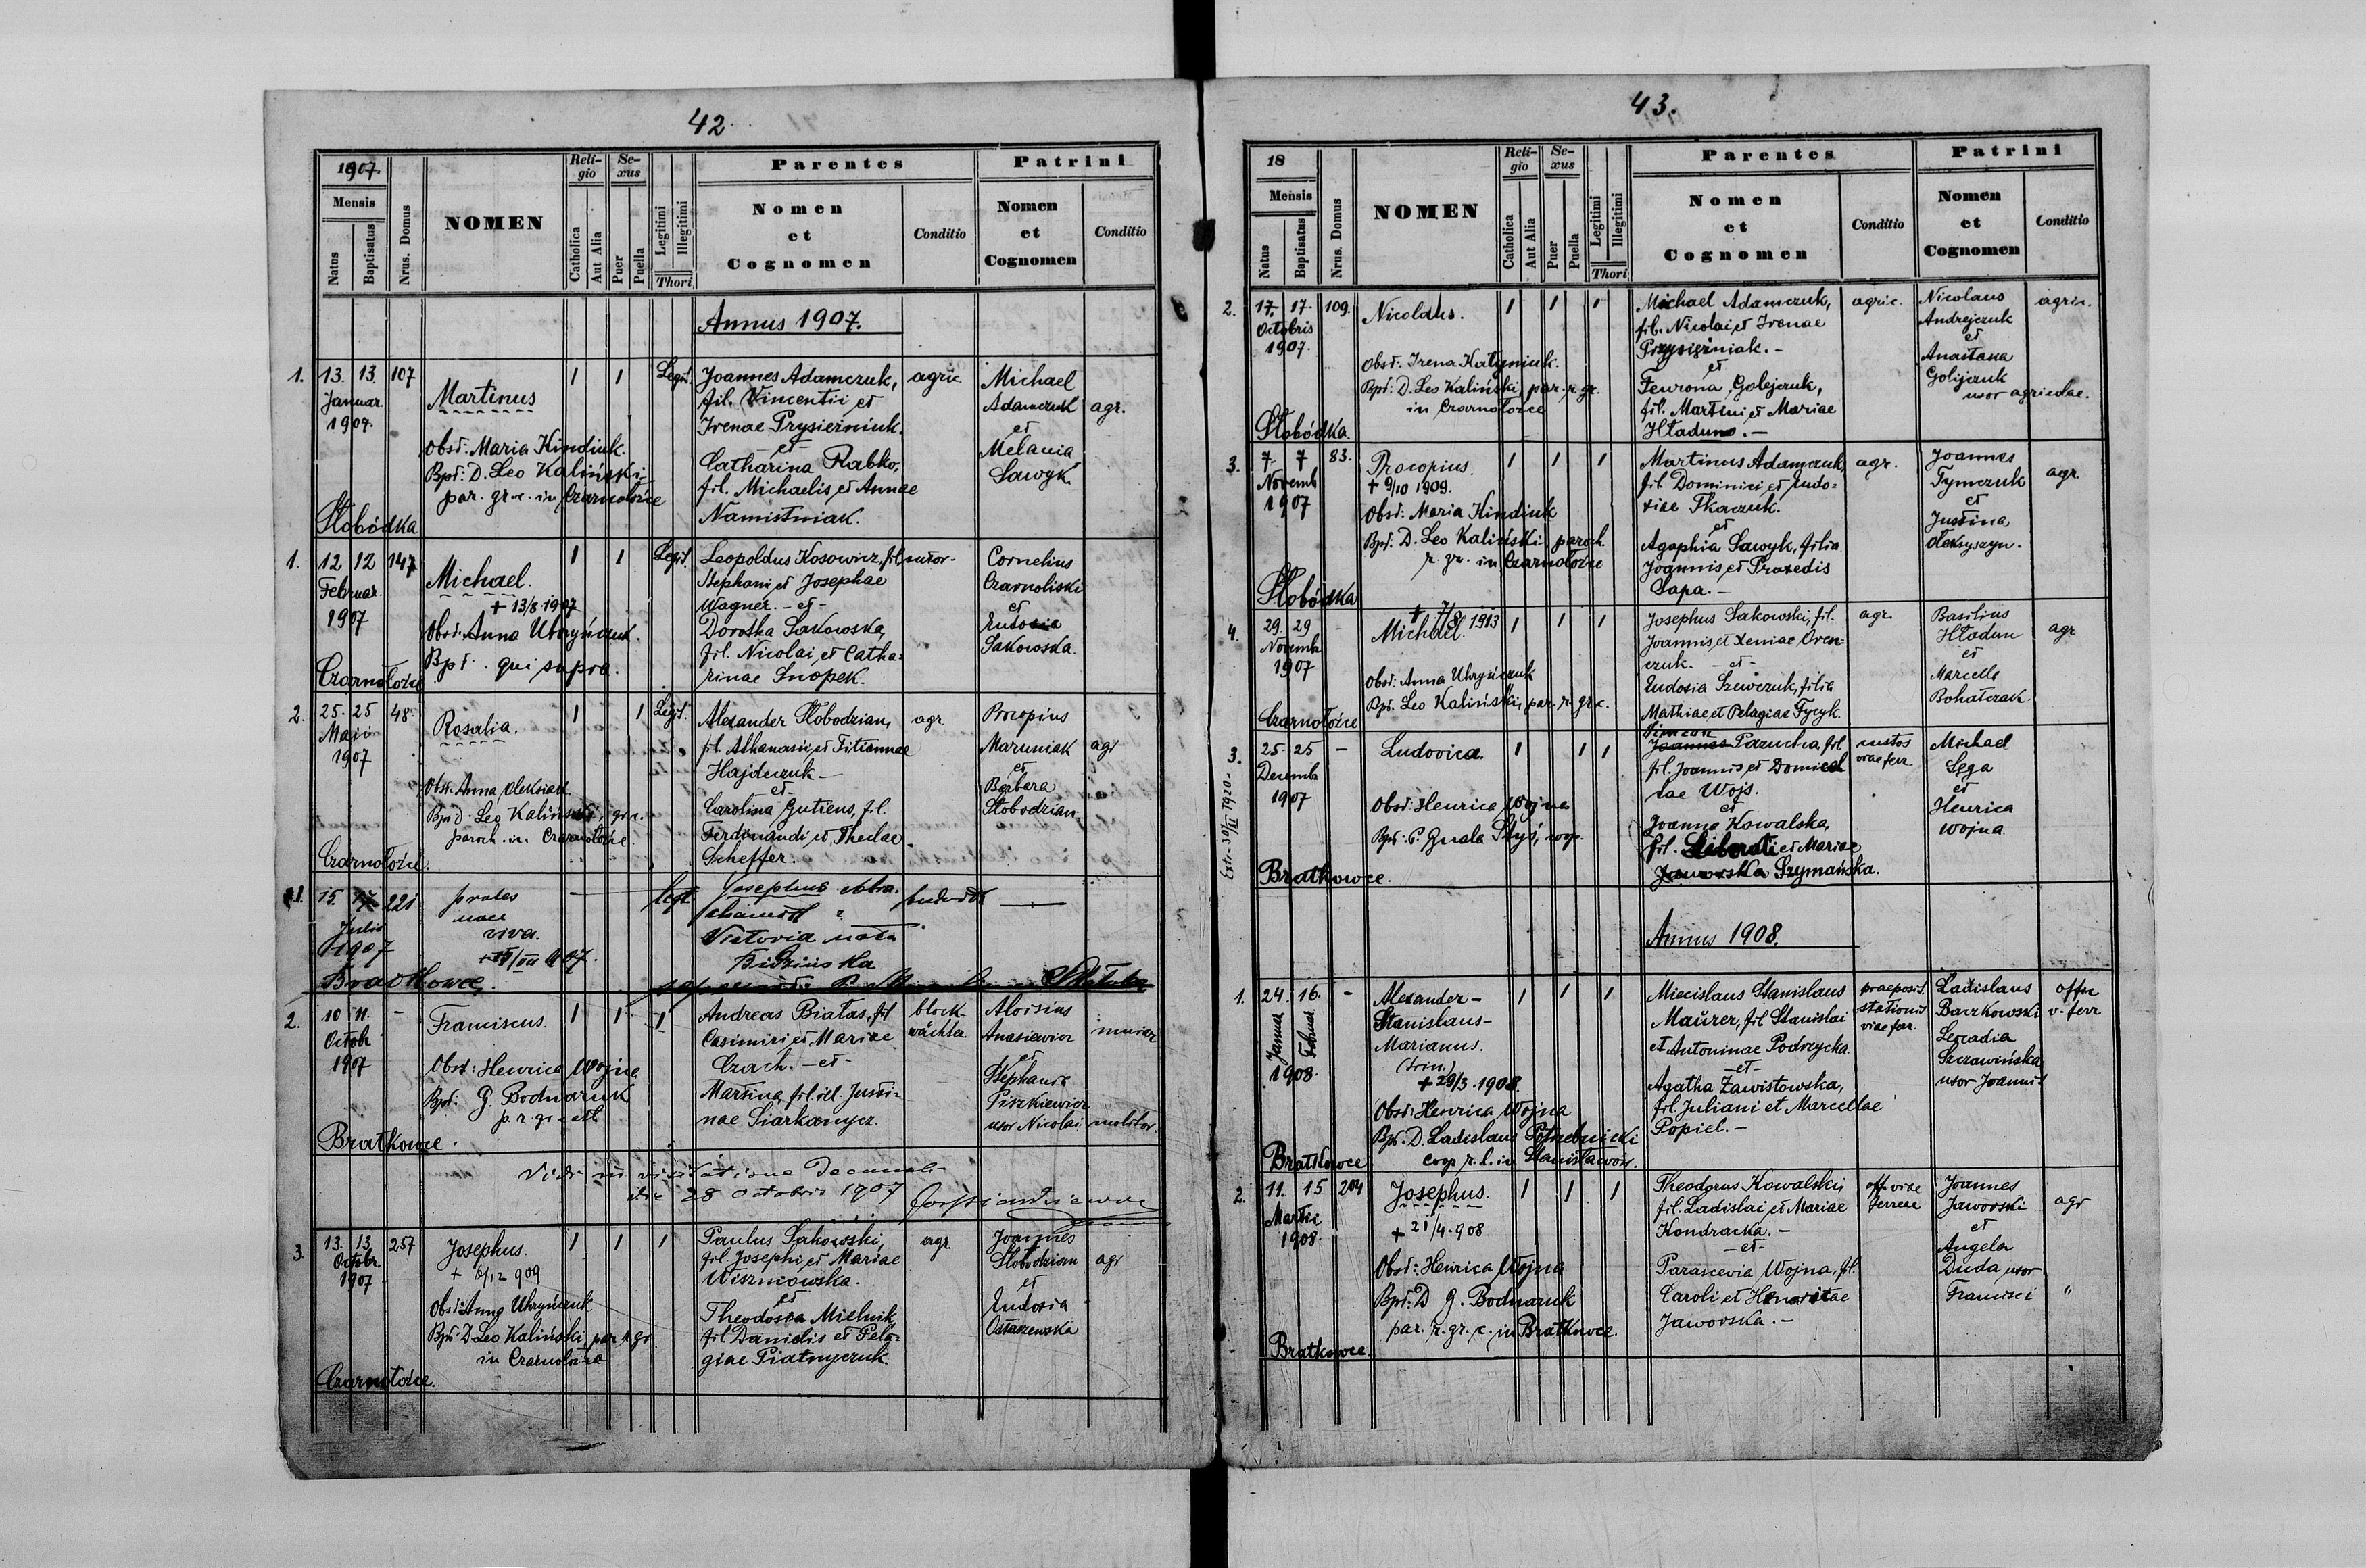 42
1907.
Mensis
Natus
Baptisatus
Nrus. Domus
NOMEN
Reli-
gio
Catholica
Aut Alia
Se-
xus
Puer
Puella
Legitimi
Illegitimi
Thori
Parentes
Nomen
et
Cognomen
Conditio
Patrini
Nomen
et
Cognomen
Conditio
Annus 1907.
1. 13. 13. 107
Januar.
1907.
Martinus
Obst: Maria Kindiuk.
Bpt: D. Leo Kaliński
par. gr. c. in Czarnołoźce
Słobódka
1 1 Legit.
Joannes Adamczuk,
fil. Vincentii et
Irenae Prysiezniuk.
et
Catharina Rabko,
fil. Michaelis et Annae
Namistniak.
agric.
Michael
Adamczuk
et
Melania
Sawyk
agr.
1. 12 12 147
Februar.
1907
Michael.
+ 13/8 1907
Obst: Anna Uhryńczuk.
Bpt. qui supra.
Czarnołoźce
1 1 Legit.
Leopoldus Kosowicz, fil.
Stephani et Josephae
Wagner. - et -
Dorothea Sakowska,
fil. Nicolai et Catha-
rinae Snopek.
sutor.
Cornelius
Czarnoliski
et
Eudosia
Sakowska.
2. 25. 25 48.
Maii
1907
Rosalia.
Obst. Anna Oleksiak
Bpt. D. Leo Kaliński, gr. c.
paroch. in Czarnołoźce.
Czarnołoźce.
1 1 Legit.
Alexander Słobodzian,
fil. Athanasii et Titiannae
Hajdeczuk.
et
Carolina Gutiens, fil.
Ferdinandi et Theclae
Scheffer.
agr
Procopius
Maruniak
et
Barbara
Słobodzian.
agr
1. 15. 221
Julii
1907
proles
non
viva.
Bratkowce.
legt
Josephus
Victoria nata
2. 10 11. -
Octobr
1907
Franciscus.
Obst: Henrica Wojna
Bpt: G. Bodnaruk
p. r. gr. cat
Bratkowce.
1 1 1
Andreas Białas, fil
Casimiri et Mariae
Czach. - et -
Martina fil. ill. Justi-
nae Siarkanycz.
block-
wächter
Aloisius
Anasiewicz
et
Stephania
Piszkiewicz
uxor Nicolai
murar
molitor.
Vidi in visitatione Decanali
die 28 Octobris 1907
3. 13. 13. 257
Octobr.
1907.
Josephus.
+ 6/12 909
Obst: Anna Uhryńczuk
Bpt: D. Leo Kaliński, par. r. gr.
in Czarnołoźce
Czarnołoźce.
1 1 1
Paulus Sakowski,
fil. Josephi et Mariae
Wiszniowska.
et
Theodosia Mielnik,
fil. Danielis et Pela-
giae Piatnyczuk
agr
Joannes
Słobodzian
et
Eudosia
Ostaszewska
agr
43.
18
Mensis
Natus
Baptisatus
Nrus. Domus
NOMEN
Reli-
gio
Catholica
Aut Alia
Se-
xus
Puer
Puella
Legitimi
Illegitimi
Thori
Parentes
Nomen
et
Cognomen
Conditio
Patrini
Nomen
et
Cognomen
Conditio
2. 17. 17. 109.
Octobris
1907.
Nicolaus.
Obst. Irena Katyniuk.
Bpt. D. Leo Kaliński, par. r. gr.
in Czarnołoźce
Słobódka.
1 1 1
Michael Adamczuk,
fil. Nicolai et Irenae
Prysiężniak. -
et
Fewrona Golejczuk,
fil. Martini et Mariae
Hładun. -
agric.
Nicolaus
Andrejczuk
et
Anastasia
Golijczuk
uxor agricolae.
agric.
3. 7 7 83.
Novemb
1907
Procopius.
+ 9/10 1909.
Obst: Maria Kindiuk
Bpt. D. Leo Kaliński, paroch.
r. gr. in Czarnołoźce
Słobódka
1 1 1
Martinus Adamczuk,
fil. Dominici et Eudo-
xiae Tkaczuk.
et
Agaphia Sawyk, filia
Joannis et Praxedis
Sapa. -
agr.
Joannes
Tymczuk
et
Justina
Oleksyszyn.
agr.
4. 29 29 -
Novemb
1907
+ 7/8 1913
Michael.
Obst: Anna Uhryńczuk
Bpt. Leo Kaliński, par. r. gr. c.
Czarnołoźce
1 1 1
Josephus Sakowski, fil.
Joannis et Xeniae Oren-
czuk. - et -
Eudosia Szewczuk, filia
Mathiae et Pelagiae Fycyk.
agr.
Basilius
Hładun
et
Marcella
Bohatczak.
agr
3. 25. 25 -
Decemb
1907
Extr. 30/XI 1920.
Ludovica.
Obst: Henrica Wojna
Bpt: P. Guala Styś, coop.
Bratkowce.
1 1 1
Simeon
Joannes Pazucha, fil
fil. Joannis et Domicel
lae Wojs.
et
Joanna Kowalska,
fil. Liberati et Mariae
Jaworska Szymańska.
custos
viae ferr.
Michael
Sega
et
Henrica
Wojna
Annus 1908.
1. 24. 16. -
Januar. Februar.
1908.
Alexander -
Stanislaus -
Marianus.
(trin.)
+ 29/3. 1908.
Obst: Henrica Wojna
Bpt. D. Ladislaus Potrzebnicki
coop r. l. in Stanisławów.
Bratkowce
1 1 1
Miecislaus Stanislaus
Maürer, fil Stanislai
et Antoninae Podrzycka.
- et -
Agatha Zawistowska,
fil. Juliani et Marcellae
Popiel. -
praeposit.
stationis
viae ferr.
Ladislaus
Baczkowski
Leocadia
Szczawińska,
uxor Joannis
v. ferr
2. 11. 15 204
Martii
1908.
Josephus.
+ 21/4. 908
Obst: Henrica Wojna
Bpt: D G. Bodnaruk
par. r. gr. c. in Bratkowce.
Bratkowce.
1 1 1
Theodorus Kowalski,
fil. Ladislai et Mariae
Kondracka. -
- et -
Parascevia Wojna, fil.
Caroli et Henricae
Jaworska. -
off. viae
ferreae
Joannes
Jaworski
et
Angela
Duda, uxor
Francisci
agr
"